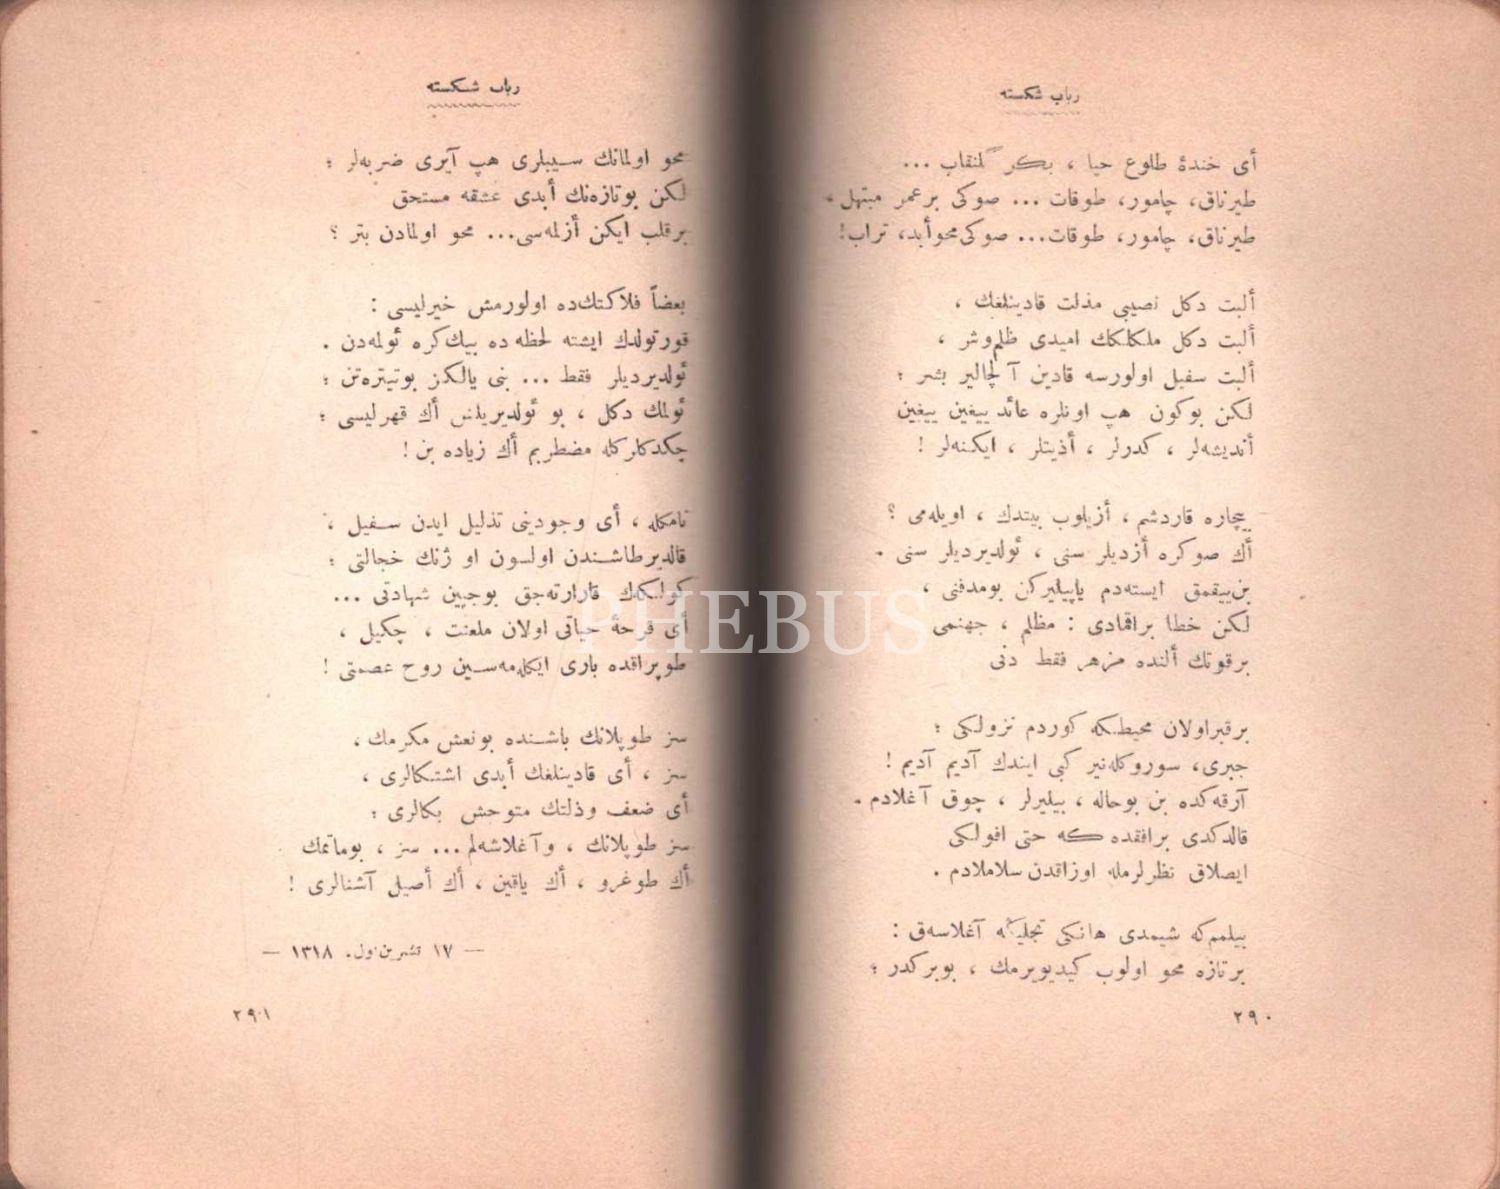 رباب شكسته
أی خندهٔ طلوع حیا ، بكر كلنقاب ...
طیرناق، چامور، طوقات ... صوكی برعمر مبتهل ،
طیرناق، چامور، طوقات... صوكی محو أبد، تراب!
ألبت دكل نصیبی مذلت قادینلغك ،
ألبت دكل ملكلكك امیدی ظلم وشر ،
ألبت سفیل اولورسه قادین آلچالیر بشر ؛
لكن بوكون هپ اونلره عائد ییغین ییغین
أندیشه‌لر ، كدرلر ، أذیتلر ، ایكنه‌لر !
بیچاره قاردشم ، أزیلوب بیتدك ، اویله‌می ؟
أك صوكره أزدیلر سنی ، ئولدیردیلر سنی .
بن ییقمق ایسته‌دم یاپیلیركن بومدفنی ،
لكن خطا براقمادی : مظلم ، جهنمی
برقوتك ألنده مزهر فقط دنی
برقبر اولان محیطكه كوردم نزولكی ؛
جبری، سوروكله‌نیر كبی ایندك آدیم آدیم !
آرقه‌كده بن بوحاله ، بیلیرلر ، چوق آغلادم .
قالدكدی برافقده كه حتی افولكی
ایصلاق نظرلرمله اوزاقدن سلاملادم .
بیلمم‌كه شیمدی هانكی تجلیكه آغلاسه‌ق :
برتازه محو اولوب كیدیویرمك ، بوبركدر ؛
٢٩٠
رباب شكسته
محو اولمانك سببلری هپ آیری ضربه‌لر ؛
لكن بوتازه‌نك أبدی عشقه مستحق
برقلب ایكن أزلمه‌سی... محو اولمادن بتر ؟
بعضاً فلاكتك‌ده اولورمش خیرلیسی :
قورتولدك ایشته لحظه ده بیك كره ئولمه‌دن .
ئولدیردیلر فقط ... بنی یالكز بوتیتره‌تن ؛
ئولمك دكل ، بو ئولدیریلش أك قهرلیسی ؛
چكدكلركله مضطربم أك زیاده بن !
نامكله ، أی وجودینی تذلیل ایدن سفیل ،
قالدیرطاشندن اولسون او ژنك خجالتی ؛
كولكه‌ك قارارته‌جق بوجبین شهادتی ...
أی قرحهٔ حیاتی اولان ملعنت ، چكیل ،
طوپراقده باری ایكله‌مه‌سین روح عصمتی !
سز طوپلانك باشنده بونعش مكرمك ،
سز ، أی قادینلغك أبدی اشتكالری ،
أی ضعف وذلتك متوحش بكالری ؛
سز طوپلانك ، وآغلاشه‌لم... سز ، بوماتمك
أك طوغرو ، أك یاقین ، أك أصیل آشنالری !
— ١٧ تشرین اول. ١٣١٨ —
٢٩١
PHEBUS